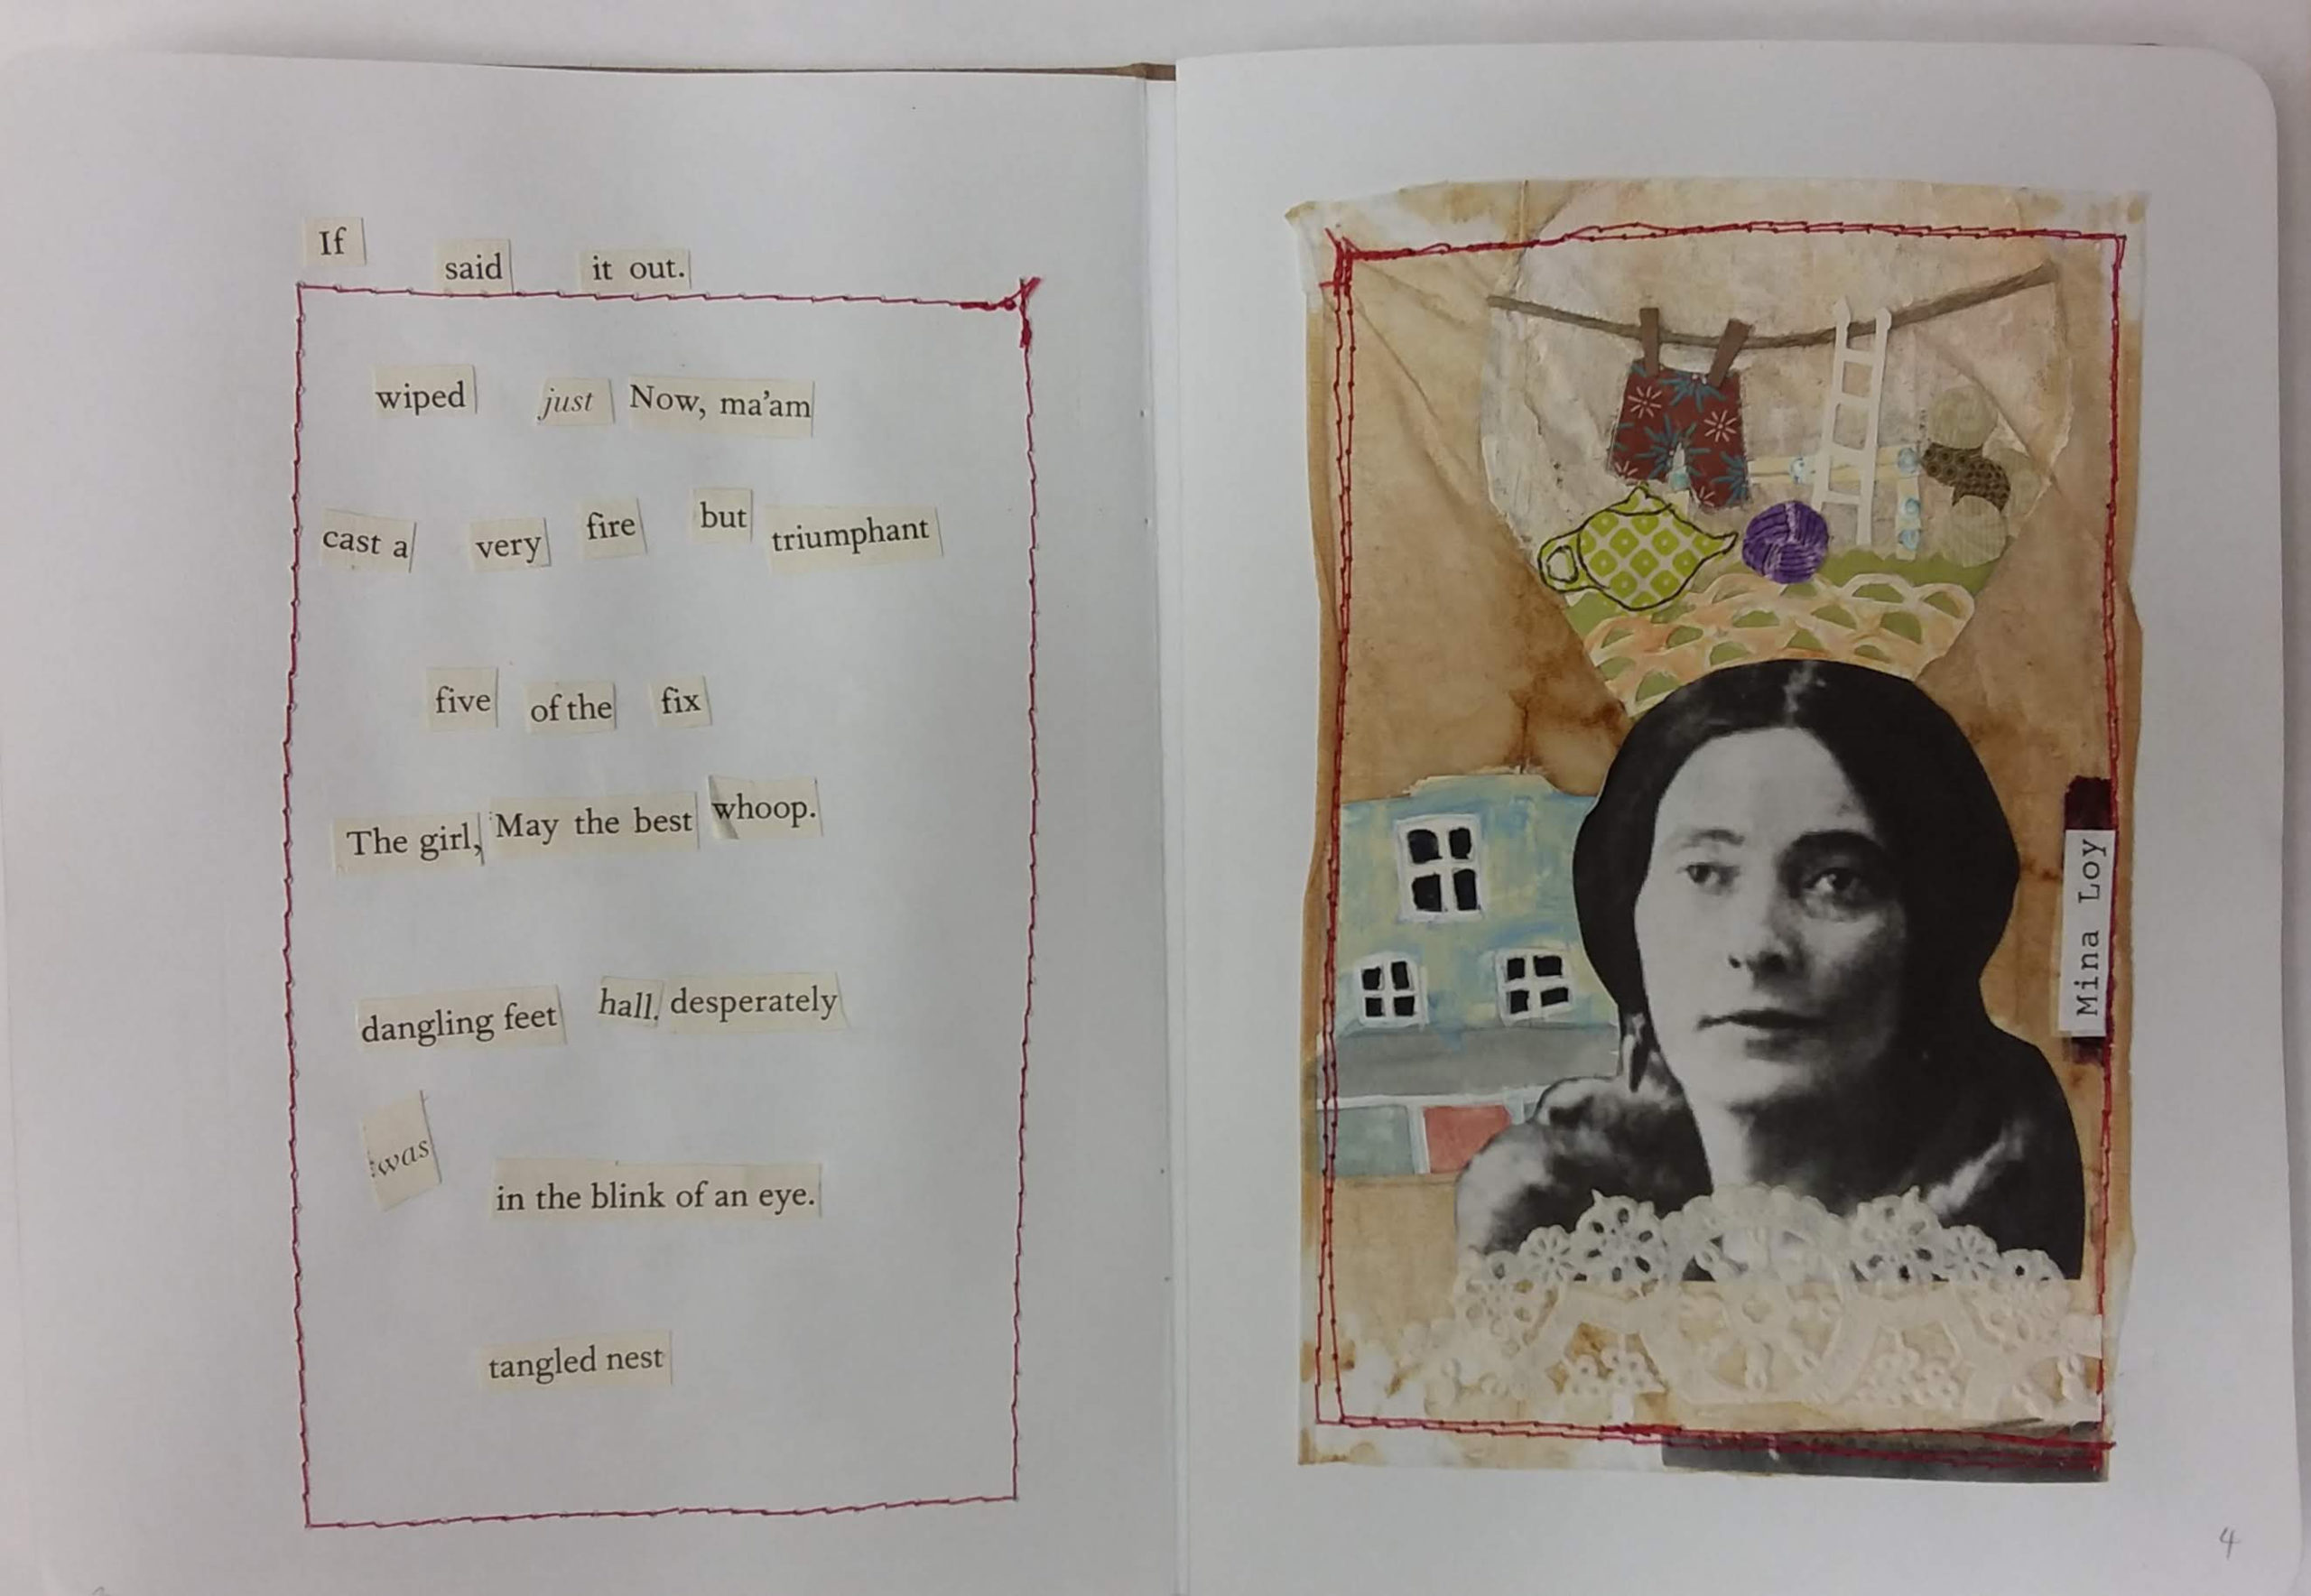 If said it out.
wiped just Now, ma'am
cast a very fire but triumphant
five of the fix
The girl, May the best whoop.
dangling feet hall, desperately
was
in the blink of an eye.
tangled nest
Mina Loy
4